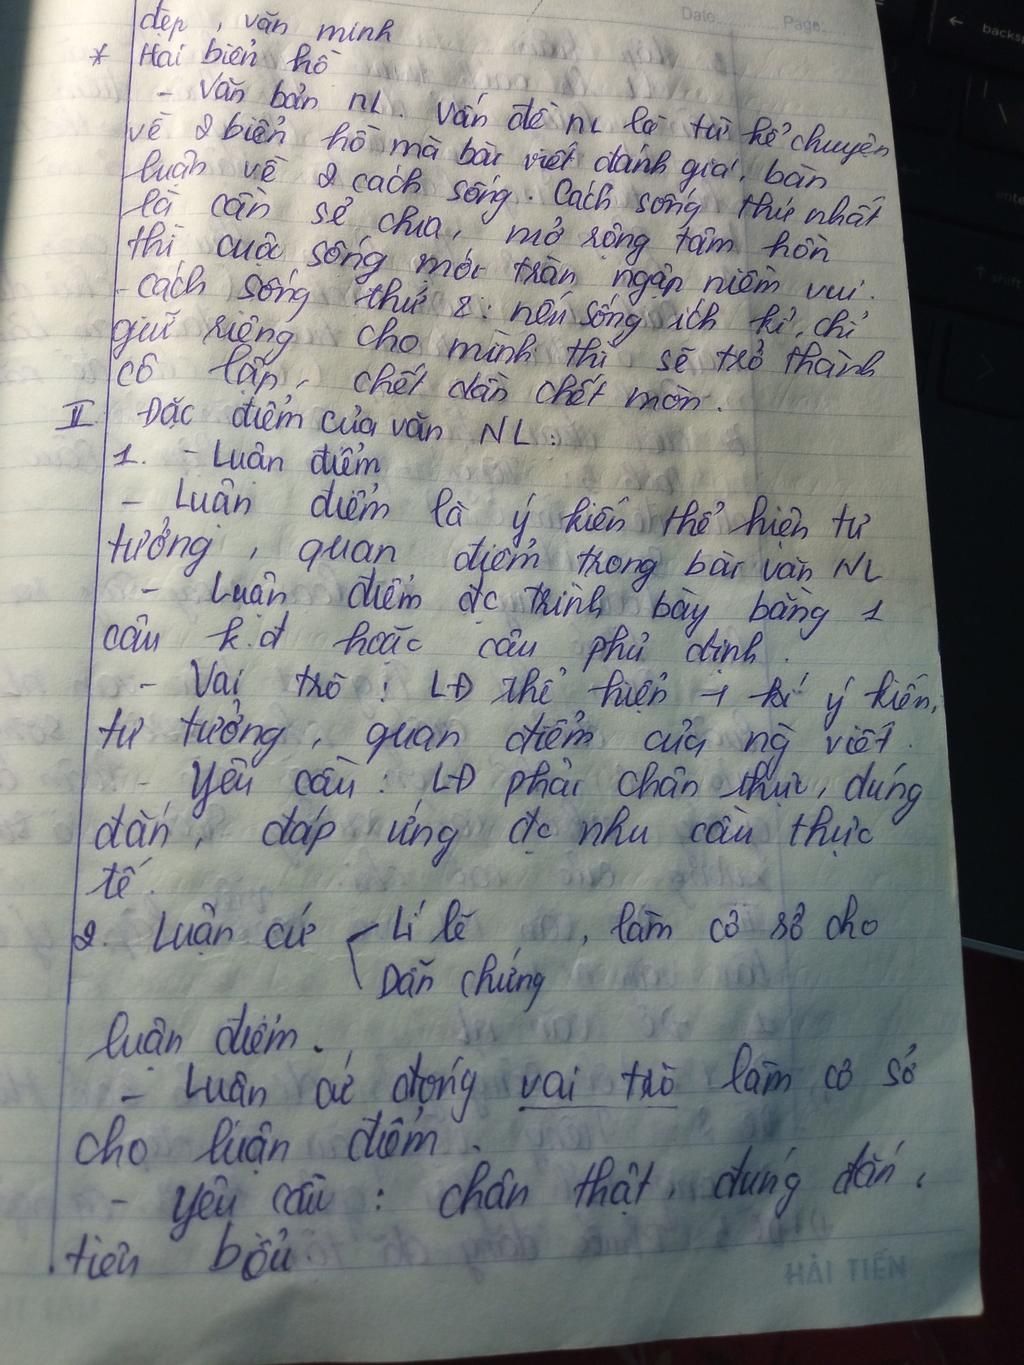 Date Page
đẹp, văn minh
* Hai biển hồ
- Văn bản NL. Vấn đề NL là từ kể chuyện
về 2 biển hồ mà bài viết đánh giá, bàn
luận về 2 cách sống. Cách sống thứ nhất
là cần sẻ chia, mở rộng tâm hồn
thì cuộc sống mới tràn ngập niềm vui.
- Cách sống thứ 2: nếu sống ích kỉ, chỉ
giữ riêng cho mình thì sẽ trở thành
cô lập, chết dần chết mòn.
II Đặc điểm của văn NL:
1. - Luận điểm
- Luận điểm là ý kiến thể hiện tư
tưởng, quan điểm trong bài văn NL
- Luận điểm đc trình bày bằng 1
câu k.đ hoặc câu phủ định.
- Vai trò: LĐ thể hiện ý kiến,
tư tưởng, quan điểm của ng viết.
- Yêu cầu: LĐ phải chân thực, đúng
đắn, đáp ứng đc nhu cầu thực
tế.
2. Luận cứ Lí lẽ , làm cơ sở cho
Dẫn chứng
luận điểm.
- Luận cứ đóng vai trò làm cơ sở
cho luận điểm.
- Yêu cầu: chân thật, đúng đắn,
tiêu biểu
HẢI TIẾN
backsp
shift